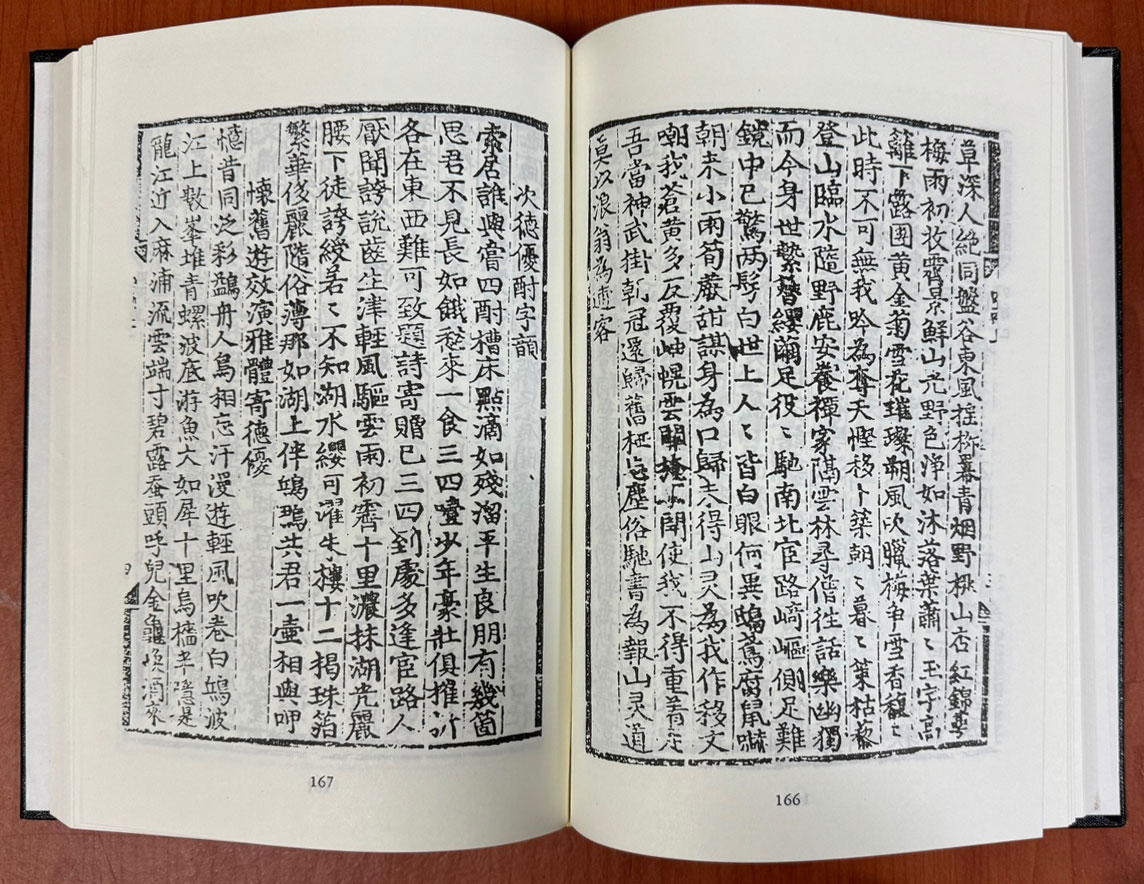 草深人絶同盤谷東風揺揚羃青烟野桃山杏紅錦亭
梅雨初收霽景鮮山光野色浄如沐落葉蕭〻玉宇高
籬下露團黃金菊雪花璀璨朔風吹臘梅爭雪香馥〻
此時不可無我吟為奪天慳移卜築朝〻暮〻策枯藜
登山臨水隨野鹿安養禪家隔雲林尋僧徃話樂幽獨
而今身世縶簪纓繭足役〻馳南北宦路﨑嶇側足難
鏡中已驚两髩白世上人〻皆白眼何異鴟鳶腐鼠嚇
朝来小雨筍蕨甜謀身為口歸未得山灵為我作移文
嘲我蒼黃多反覆岫幌雲關掩不開使我不得重着足
吾當神武掛朝冠還歸舊栖忘塵俗馳書為報山灵道
莫以浪翁為逋客
166
次德優酎字韻
索居誰與嘗四酎槽床點滴如殘溜平生良朋有幾箇
思君不見長如餓愁來一食三四嚏少年豪壯俱摧
各在東西難可致題詩寄贈已三四到處多逢宦路人
厭聞誇說齒生津輕風驅雲雨初霽十里濃抹湖光麗
腰下徒誇綬若〻不知湖水纓可濯朱樓十二揭珠箔
繁華侈麗隨俗薄那如湖上伴鴟鷺共君一壺相與呷
懷舊遊效演雅體寄德優
憶昔同泛彩鷁舟人烏相忘汗漫遊輕風吹卷白鴟波
江上數峯堆青螺波底游魚大如犀十里烏檣半隱是
龍江近入麻浦流雲端寸碧露蚕頭呼兒金龜換酒來
167